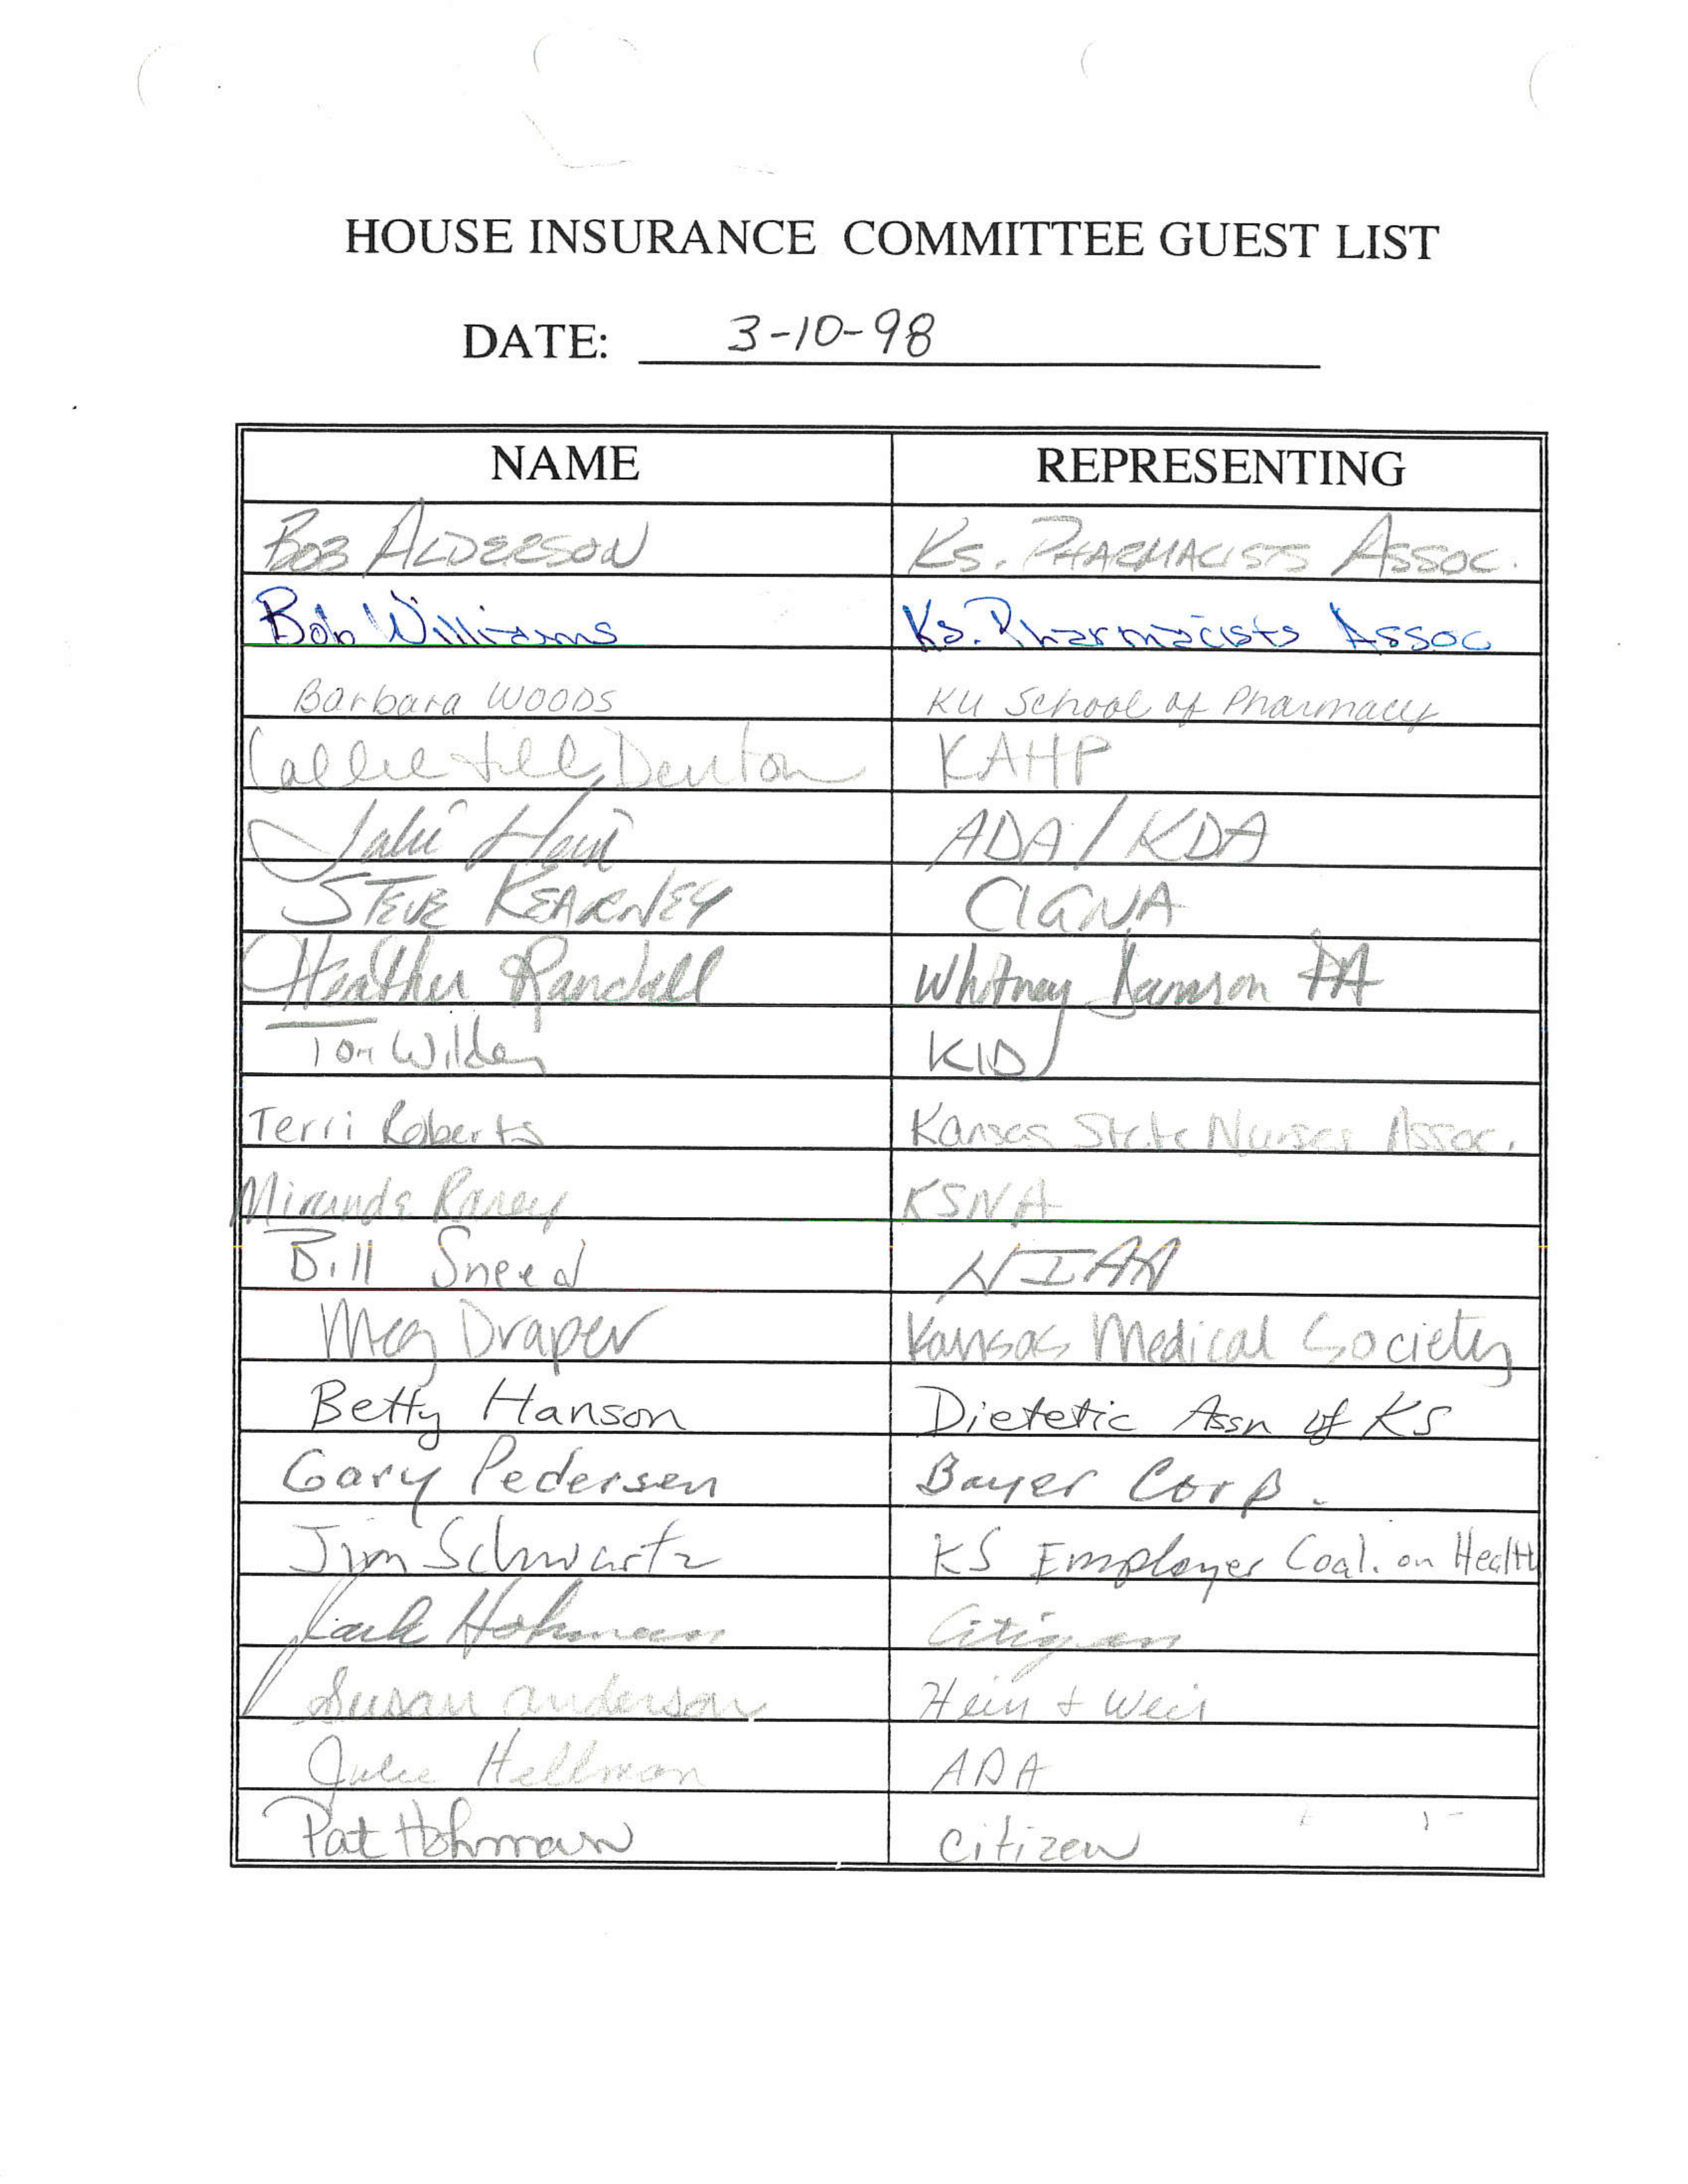 HOUSE INSURANCE COMMITTEE GUEST LIST
DATE: 3-10-98
NAME REPRESENTING
BOB ALDERSON KS. PHARMACISTS ASSOC.
Bob Williams Ks. Pharmacists Assoc
Barbara WOODS KU School of Pharmacy
Callie Jill Denton KAHP
Julie Hein ADA / KDA
STEVE KEARNEY CIGNA
Heather Randall Whitney Damron PA
Tom Wilder KID
Terri Roberts Kansas State Nurses Assoc.
Miranda KSNA
Bill Sneed HIAA
Meg Draper Kansas Medical Society
Betty Hanson Dietetic Assn of KS
Gary Pedersen Bayer Corp.
Jim Schwartz KS Employer Coal. on Health
Hohman Citizen
Susan Anderson Hein + Weir
Julie Hellman ADA
Pat Hohman Citizen